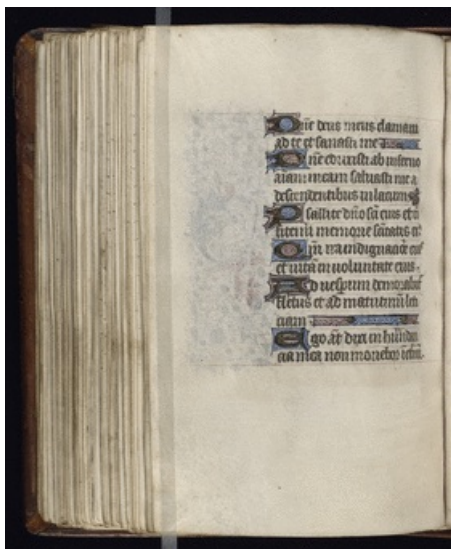 Dñe deus meus clamaui
ad te et sanasti me
Dñe eduxisti ab inferno
aiam meam saluasti me a
descendentibus in lacum
Psallite dño sci eius et
memorie sctitatis
Qm ira in indignacōe eius
et uita in uoluntate eius.
Ad uesperum demorabit
fletus et ad matutinū leti
ciam
Ego āt dixi in
cia mea non mouebor